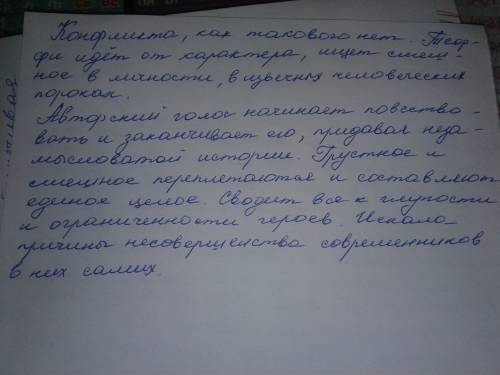 Конфликта, как такового нет. Тэф-
фи идёт от характера, ищет смеш-
ное в личности, в извечных человеческих
пороках.
Авторский голос начинает повество-
вать и заканчивает его, придавая неза-
мысловатой истории. Грустное и
смешное переплетаются и составляют
единое целое. Сводит все к глупости
и ограниченности героев. Искала
причины несовершенства современников
в них самих.